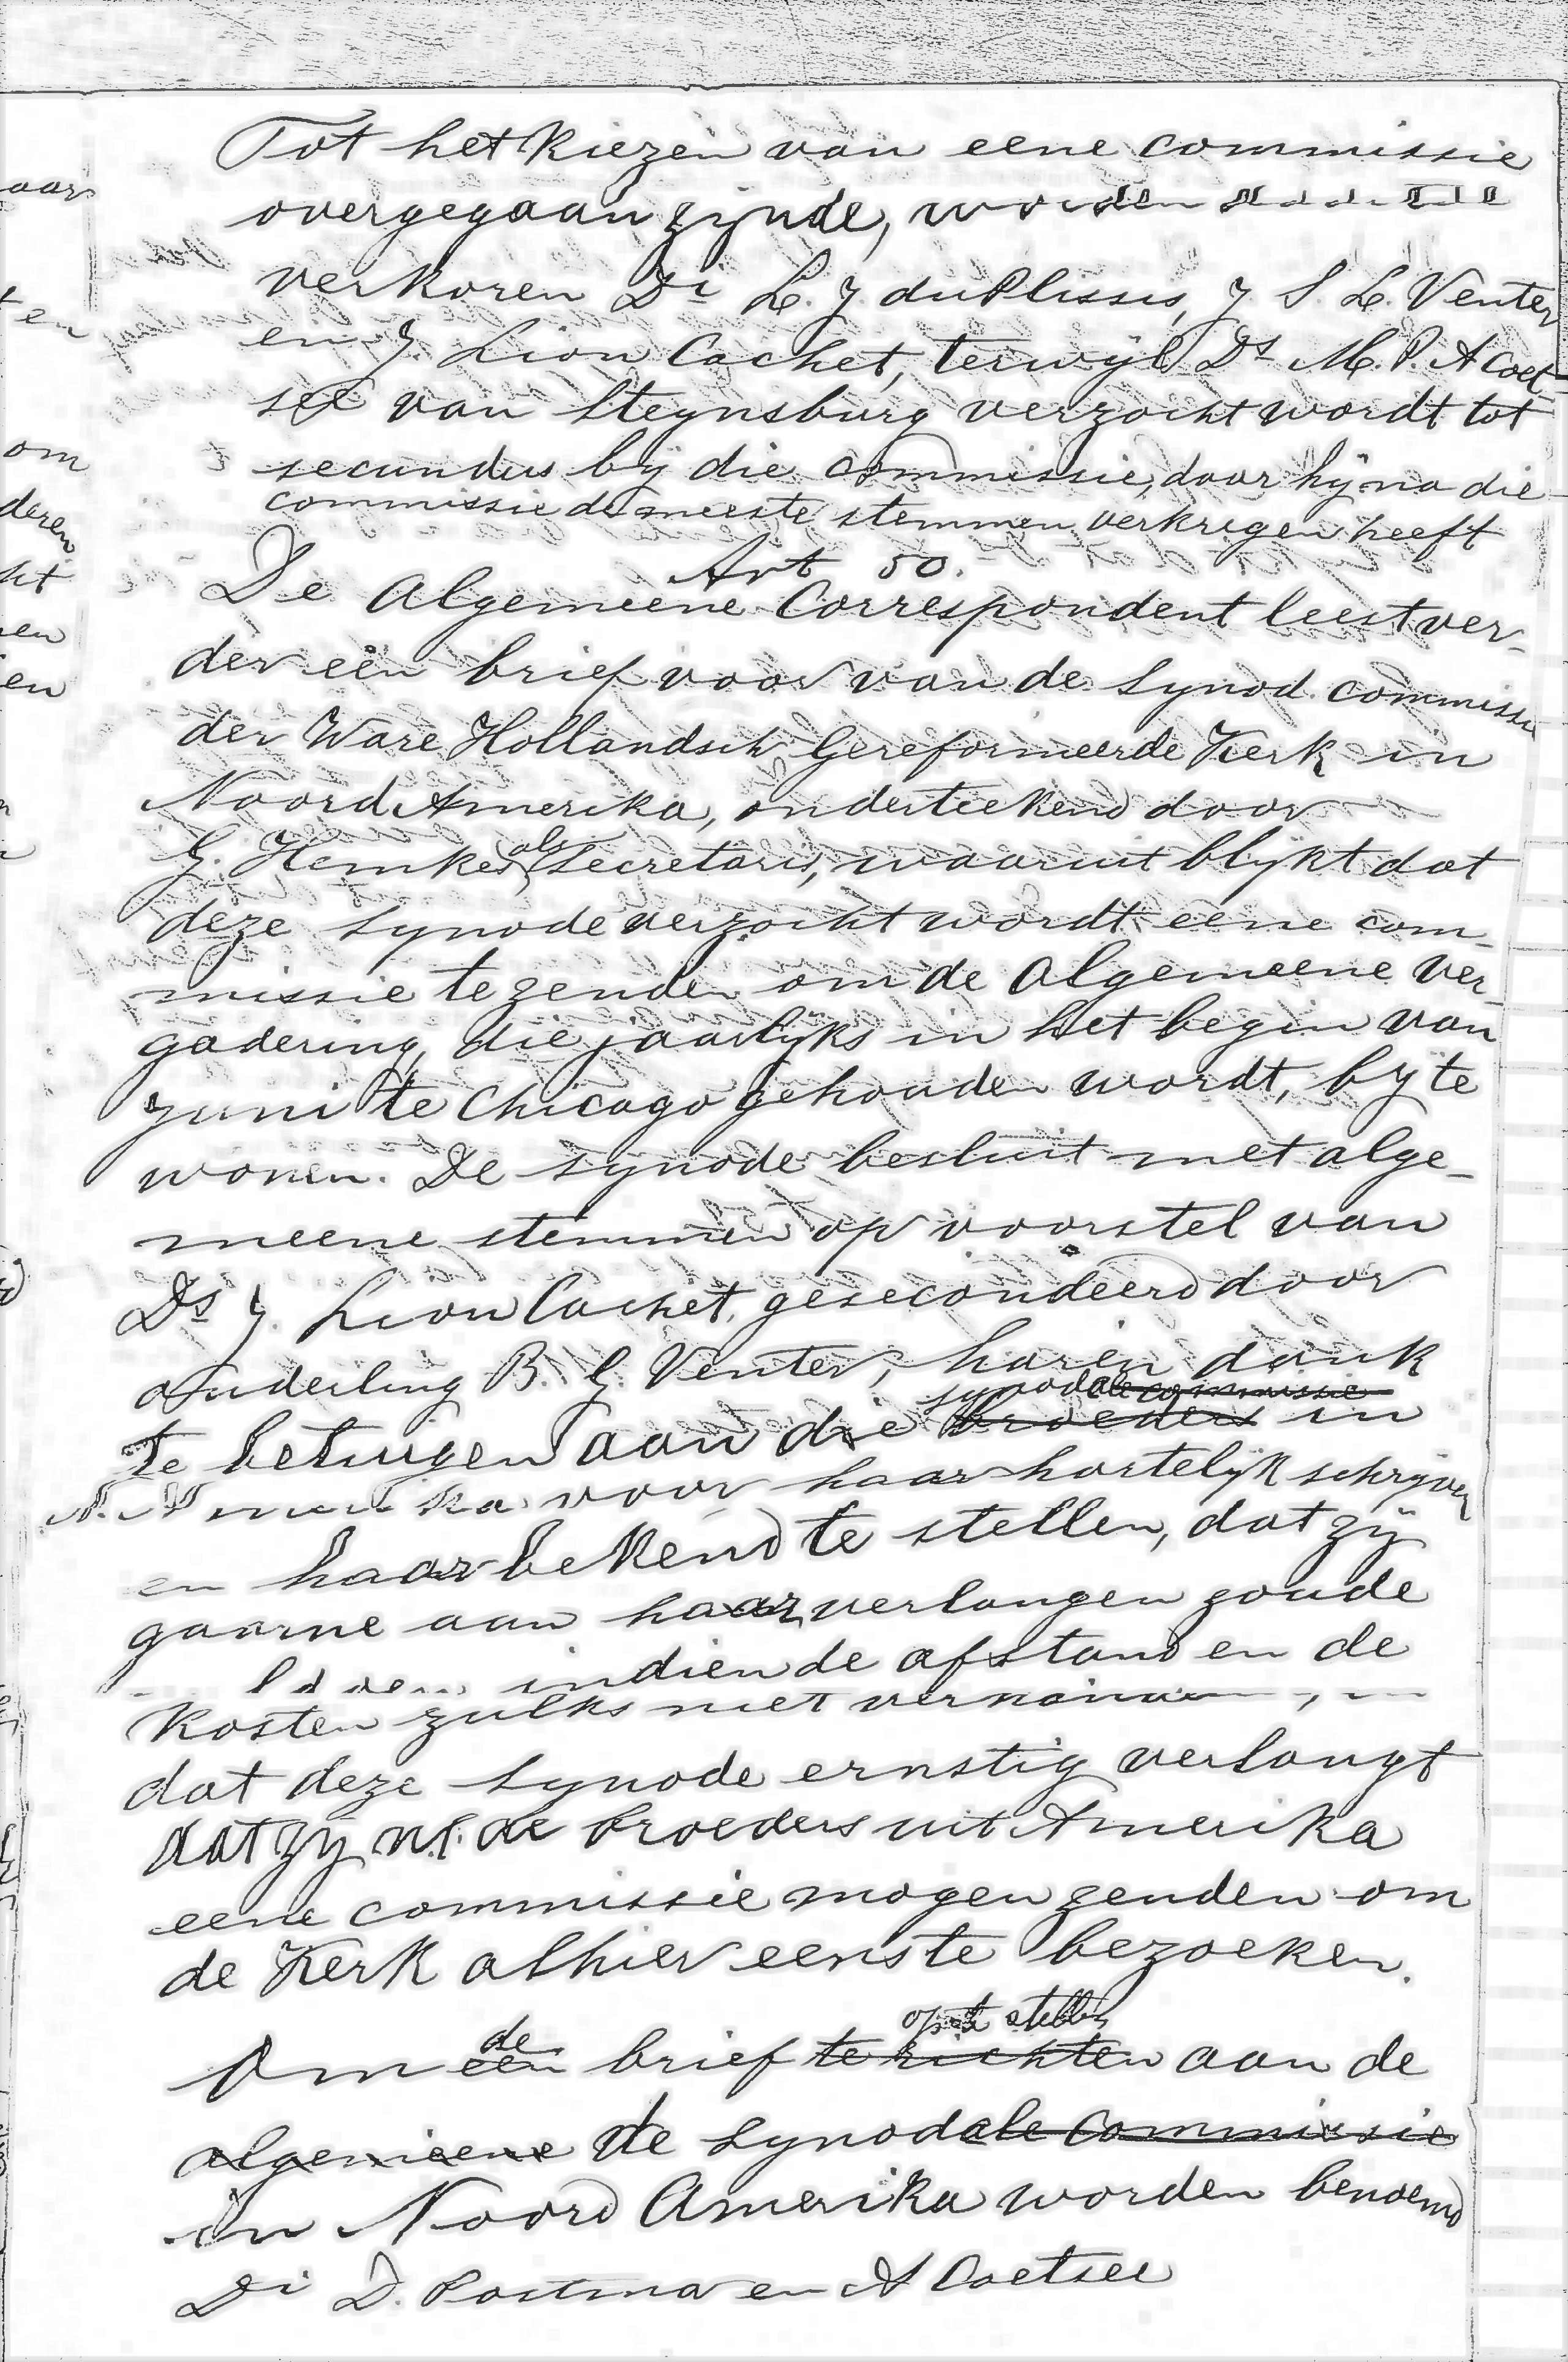 Tot het kiezen van eene commissie
overgegaan zijnde, worden
verkoren Di L. J. du Plessis, J S. L. Venter
en J. Lion Cachet, terwijl Ds M. P. A Coet-
see van Steynsburg verzocht wordt tot
secundus bij die commissie, daar hij na die
commissie de meeste stemmen verkregen heeft
Art 50.
De Algemeene Correspondent leest ver-
der een brief voor van de Synod. commissie
der Ware Hollandsch Gereformeerde Kerk in
Noord Amerika, onderteekend door
G. Hemkes als Secretaris, waaruit blijkt dat
deze synode verzocht wordt eene com-
missie te zenden om de Algemeene Ver-
gadering, die jaarlijks in het begin van
Juni te Chicago gehouden wordt, bij te
wonen. De synode besluit met alge-
meene stemmen op voorstel van
Ds J. Lion Cachet, gesecondeerd door
ouderling B. J. Venter, haren dank
synodale commissie
te betuigen aan die broeders in
N. Amerika voor haar hartelijk schrijven
en haar bekend te stellen, dat zij
gaarne aan haar verlangen zoude
indien de afstand en de
kosten zulks niet
dat deze synode ernstig verlangt
dat zij n.l. de broeders uit Amerika
eene commissie mogen zenden om
de Kerk alhier eens te bezoeken.
de op te stellen
Om een brief te richten aan de
algemeene de Synodale Commissie
in Noord Amerika worden benoemd
Di D. Postma en A Coetsee
aar
ten
om
deren
ht
en
en